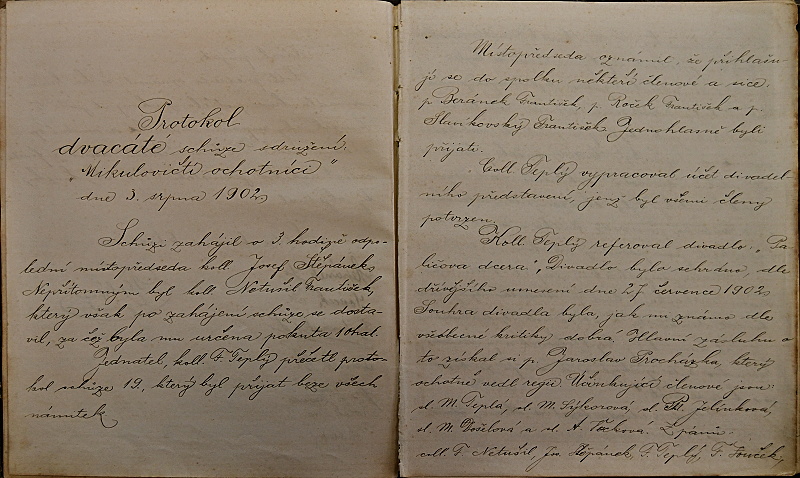 Protokol
dvacáté schůze sdružení
"Mikulovičtí ochotníci"
dne 3. srpna 1902
Schůzi zahájil o 3. hodině odpo-
lední místopředseda koll. Josef Štěpánek
Nepřítomným byl koll. Netušil František,
který však po zahájení schůze se dosta-
vil, za což byla mu určena pokuta 10 hal.
Jednatel, koll. F. Teplý přečetl proto-
kol schůze 19., který byl přijat beze všech
námitek
Místopředseda oznámil, že přihlašu-
jí se do spolku někteří členové a sice:
p. Beránek František, p. Roček František a p.
Slavíkovský František. Jednohlasně byli
přijati.
Coll. Teplý vypracoval účet divadel-
ního představení, jenž byl všemi členy
potvrzen.
Koll. Teplý referoval divadlo: "Pa-
ličova dcera". Divadlo bylo sehráno, dle
dřívějšího usnesení dne 27 července 1902
Souhra divadla byla, jak mi známo dle
všeobecné kritiky dobrá. Hlavní zásluhu o
to získal si p. Jaroslav Procházka, který
ochotně vedl regii. Účinkující členové jsou:
sl. M. Teplá, sl. M. Sýkorová, sl. Jelínková,
sl. M. Votěelová a sl. A. Z pánů:
coll. F. Netušil, Jos. Štěpánek, F. Teplý, F.